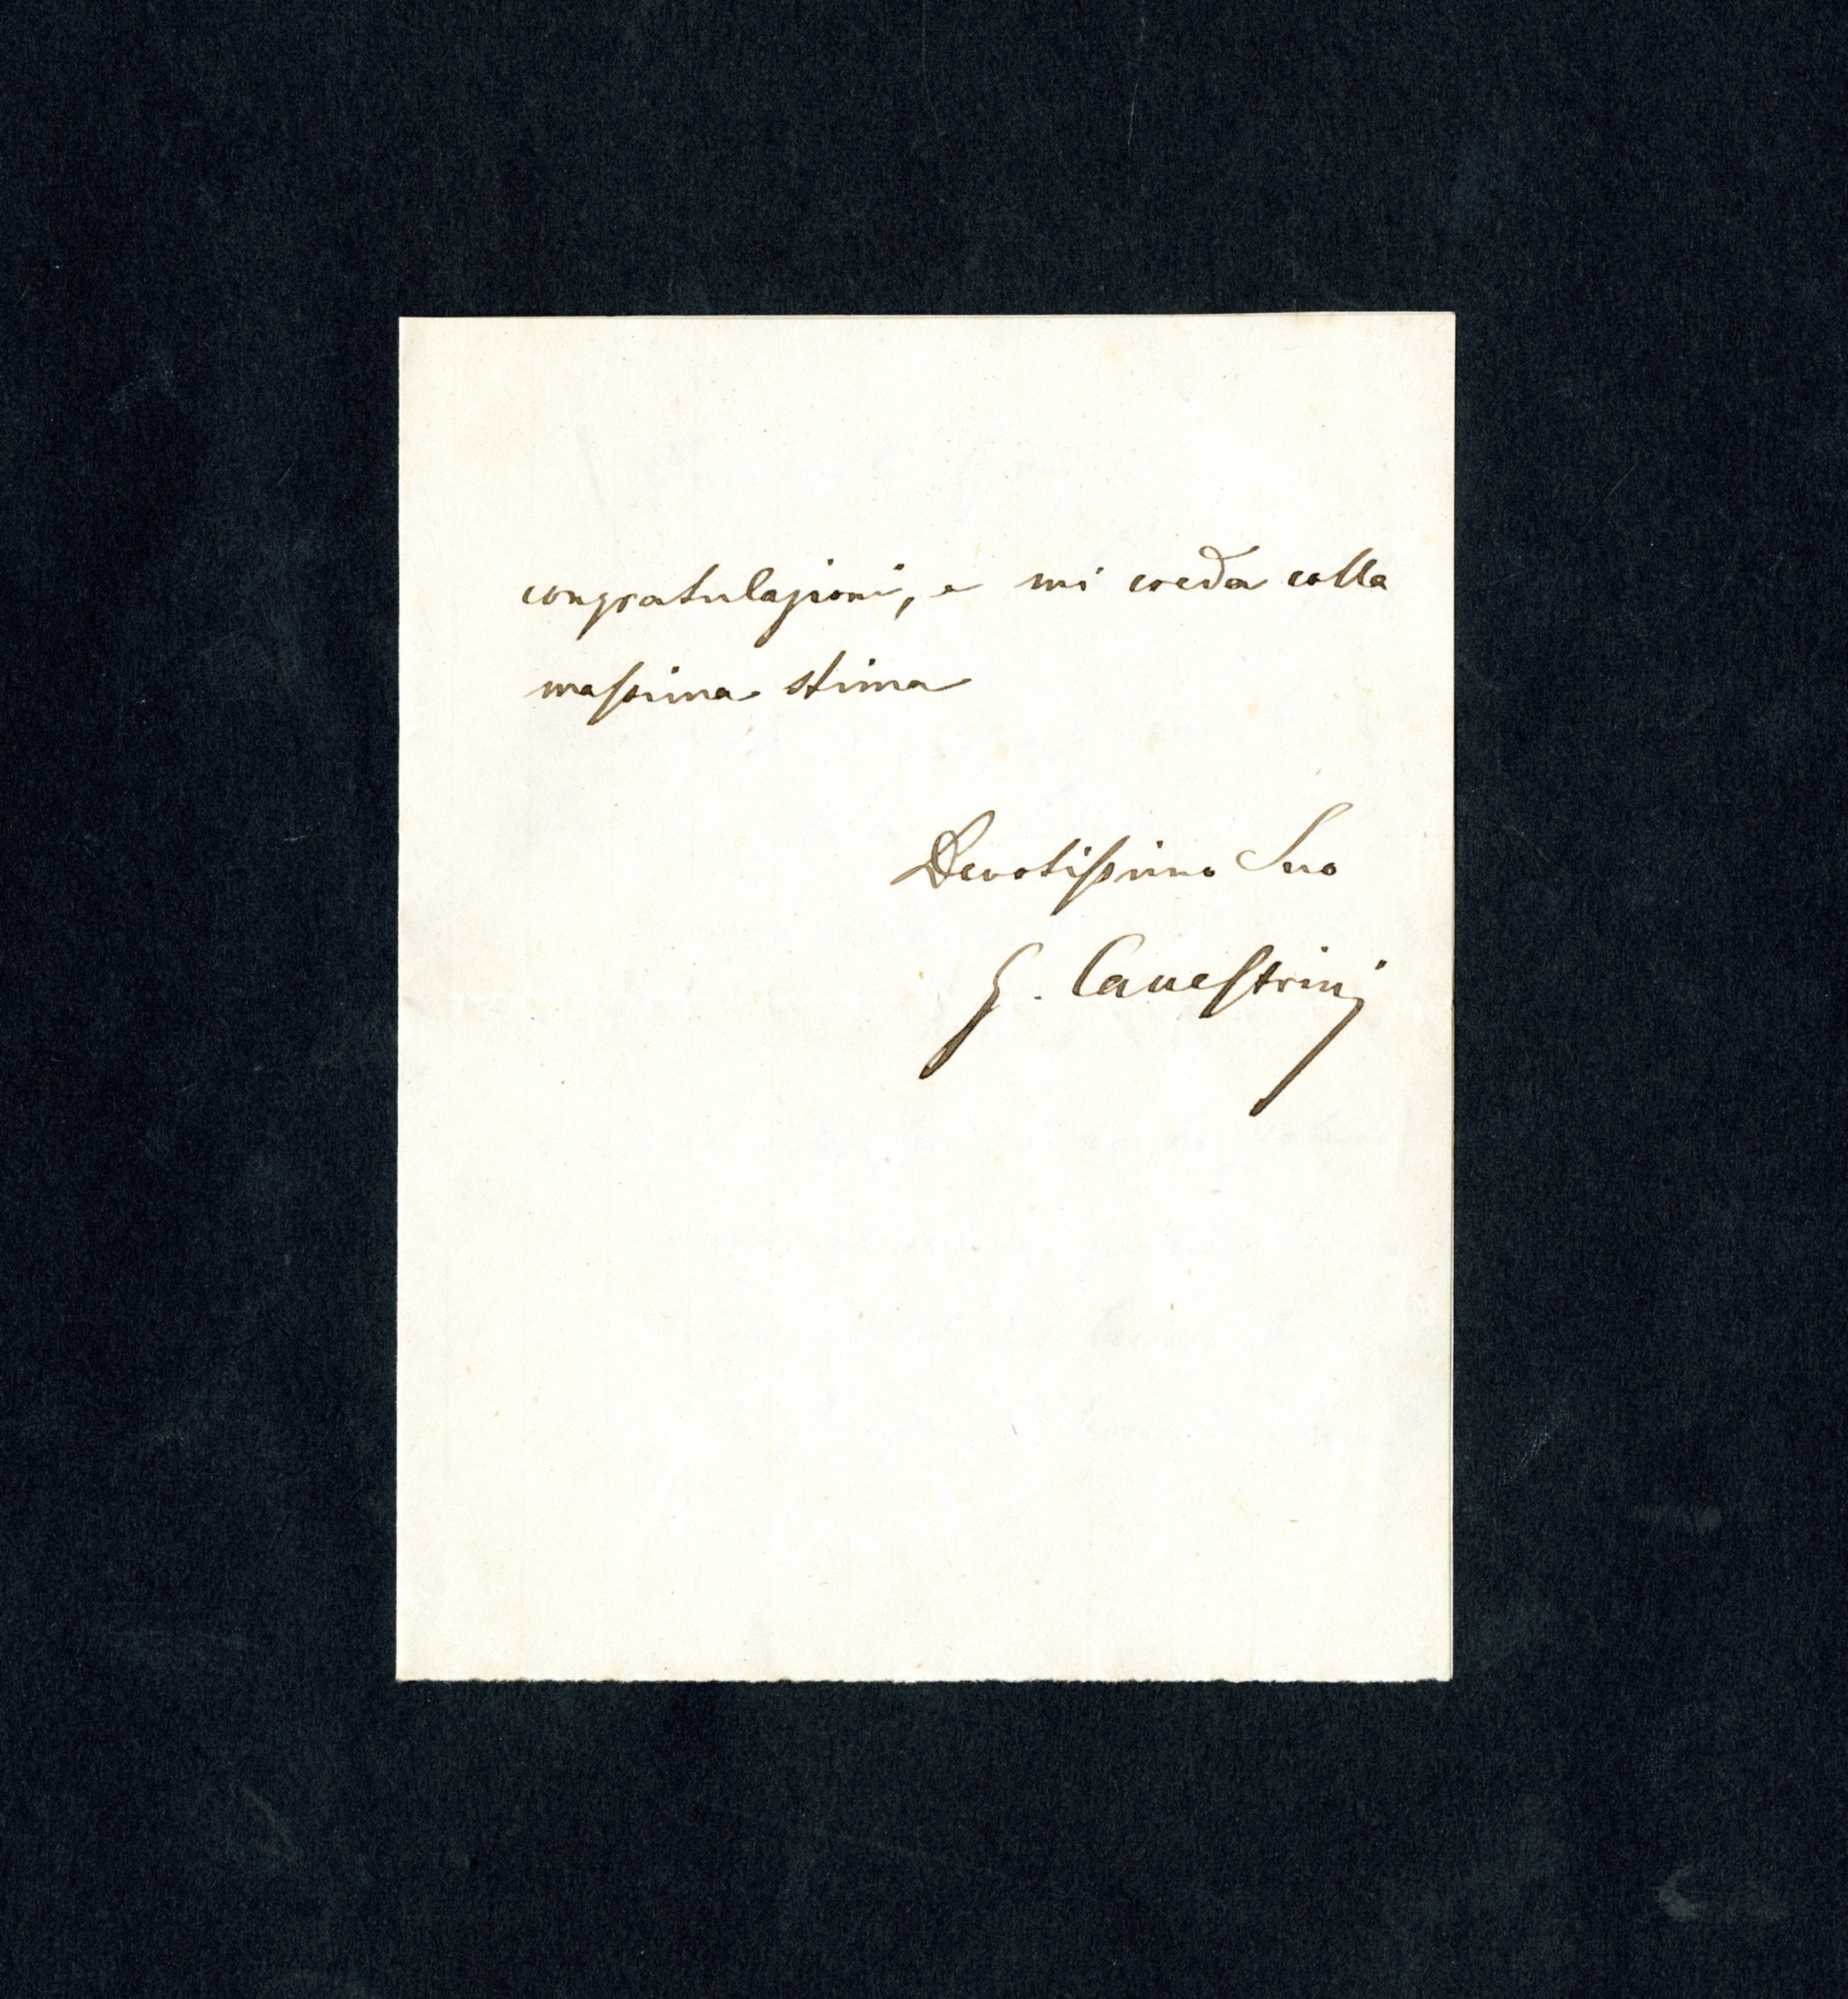 congratulazioni, e mi creda colla
massima stima
Devotissimo Suo
G. Canestrini